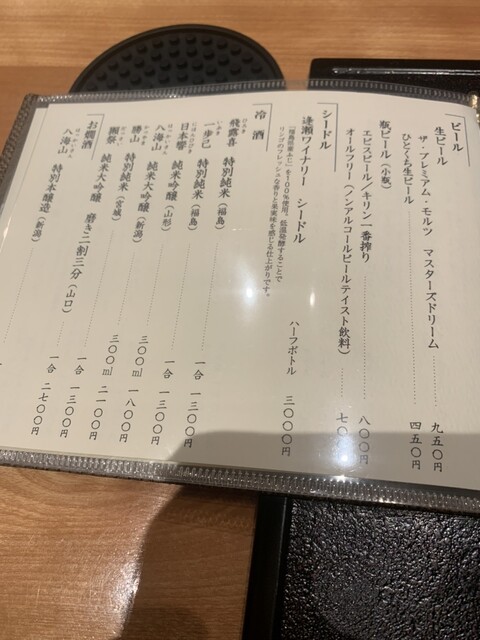 ビール
生ビール
ザ・プレミアム・モルツ マスターズドリーム 九五〇円
ひとくち生ビール 四五〇円
瓶ビール(小瓶)
エビスビール/キリン一番搾り 八〇〇円
オールフリー(ノンアルコールビールテイスト飲料) 七〇
シードル
逢瀬ワイナリー シードル ハーフボトル 三〇〇〇円
「福島県産ふじ」を100%使用。低温発酵することで
リンゴのフレッシュな香りと果実味を感じる仕上がりです。
冷酒
飛露喜 特別純米(福島) 一合 一三〇〇円
一歩己 特別純米(福島) 一合 一三〇〇円
日本響 純米吟醸(山形) 三〇〇ml 一八〇〇円
八海山 純米大吟醸(新潟) 三〇〇ml 二一〇〇円
勝山 特別純米(宮城) 一合 一三〇〇円
獺祭 純米大吟醸 磨き二割三分(山口) 一合 二七〇〇円
お燗酒
八海山 特別本醸造(新潟)